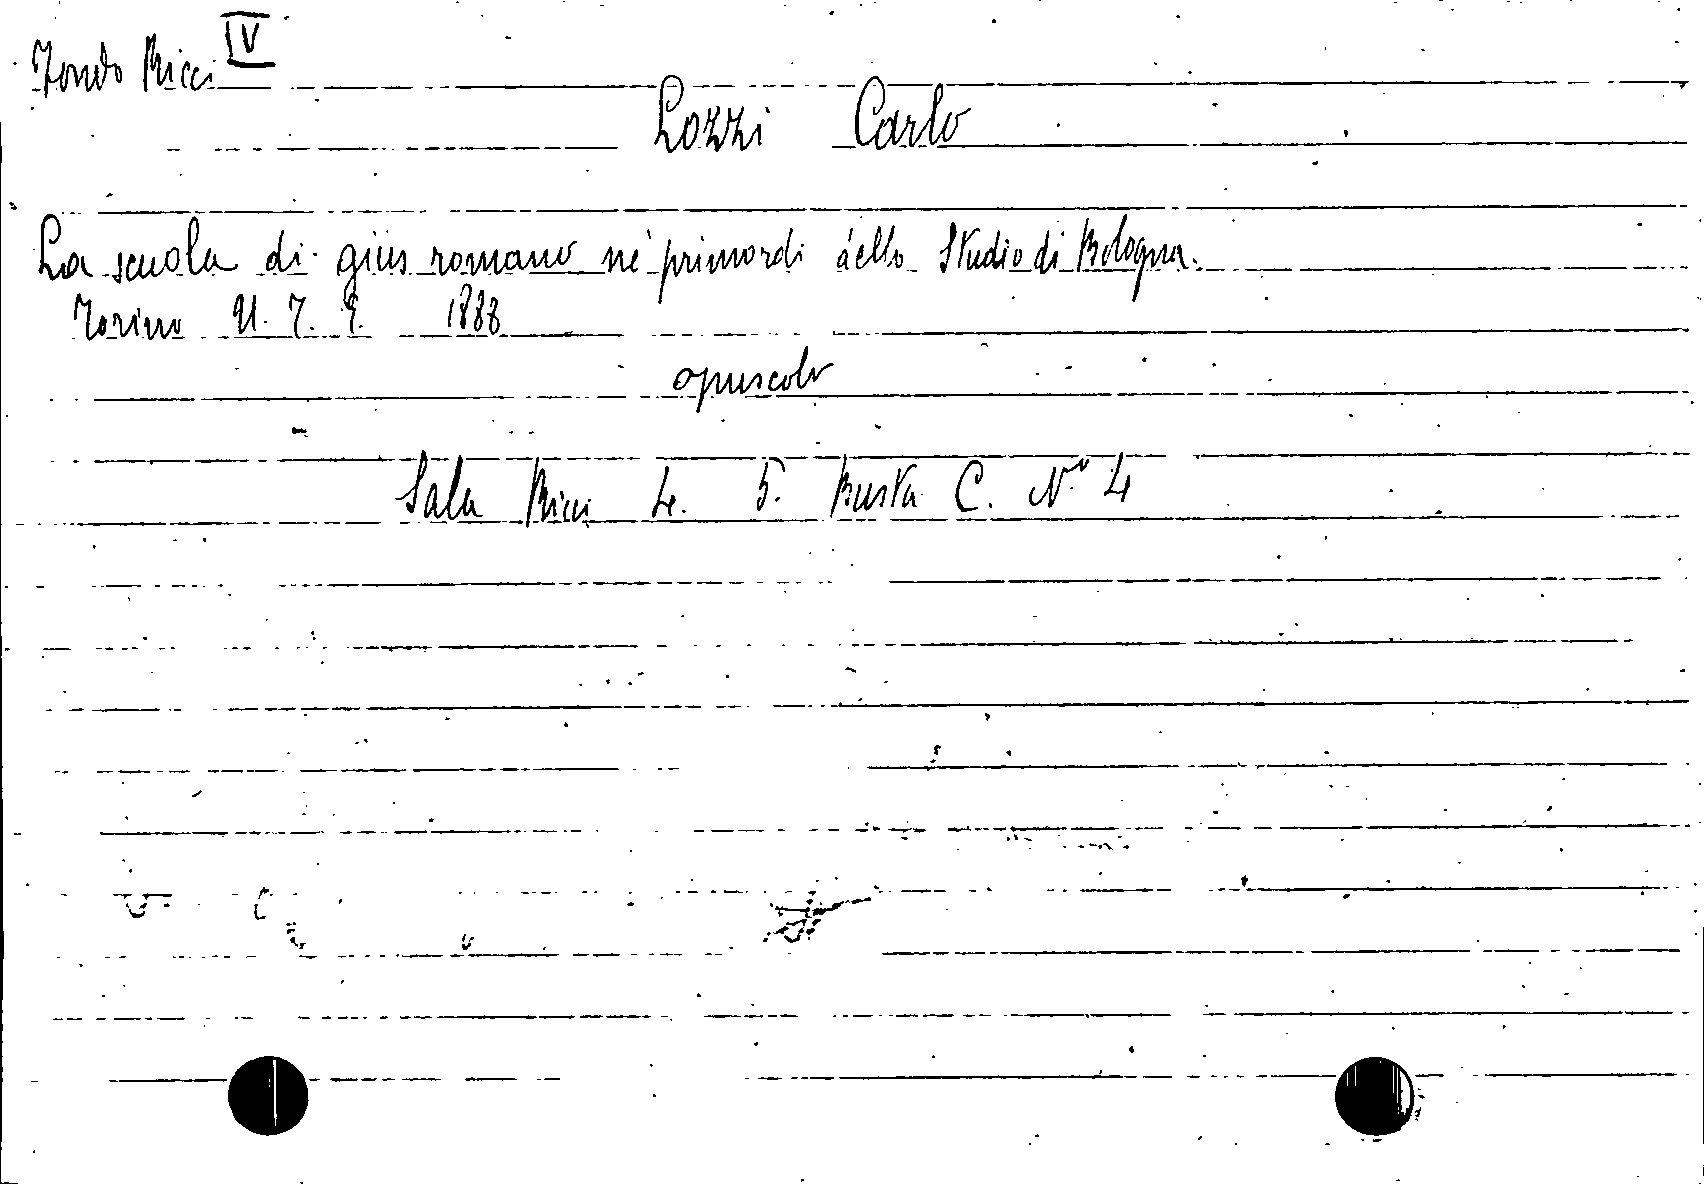 Fondo Ricci IV
Lozzi Carlo
La scuola di gius romano ne' primordi dello Studio di Bologna.
Torino U. T. E. 1888
opuscolo
Sala Ricci L. 5. Busta C. N.o 4